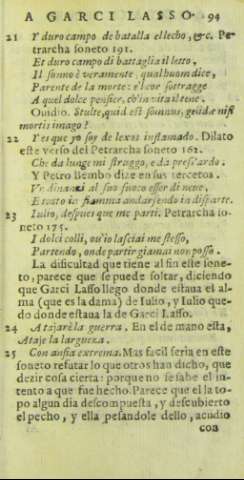 A GARCI LASSO. 94
21 Y duro campo de batalla el lecho, &c. Pe-
trarcha soneto 191.
Et duro campo di battaglia il letto.
Il sonno è veramente, qual huom dice,
Parente de la morte: e'l cor sottragge
A quel dolce pensier, ch'in vita il tene.
Ouidio. Stulte, quid est somnus, gelidæ nisi
mortis imago?
22 Y es que yo soy de lexos inflamado. Dilato
este verso del Petrarcha soneto 162.
Che da lunge mi struggo, e da press'ardo.
Y Petro Bembo dize en sus tercetos.
Ve dinanzi al suo fuoco esser di neue,
Et tutto in fiamma andar sendo in disparte.
23 Iulio, despues que me parti. Petrarcha so-
neto 175.
I dolci colli, ou'io lasciai me stesso,
Partendo, onde partir giamai non posso.
La dificultad que tiene al fin este sone-
to, parece que se puede soltar, diciendo
que Garci Lasso llego donde estaua el al-
ma (que es la dama) de Iulio, y Iulio que-
do donde estaua la de Garci Lasso.
24 Atajarè la guerra. En el de mano esta,
Ataje la largueza.
25 Con ansia extrema. Mas facil seria en este
soneto refutar lo que otros han dicho, que
dezir cosa cierta: porque no se sabe el in-
tento a que fue hecho. Parece que el la to-
po algun dia descompuesta, y descubierto
el pecho, y ella pesandole dello, acudio
con